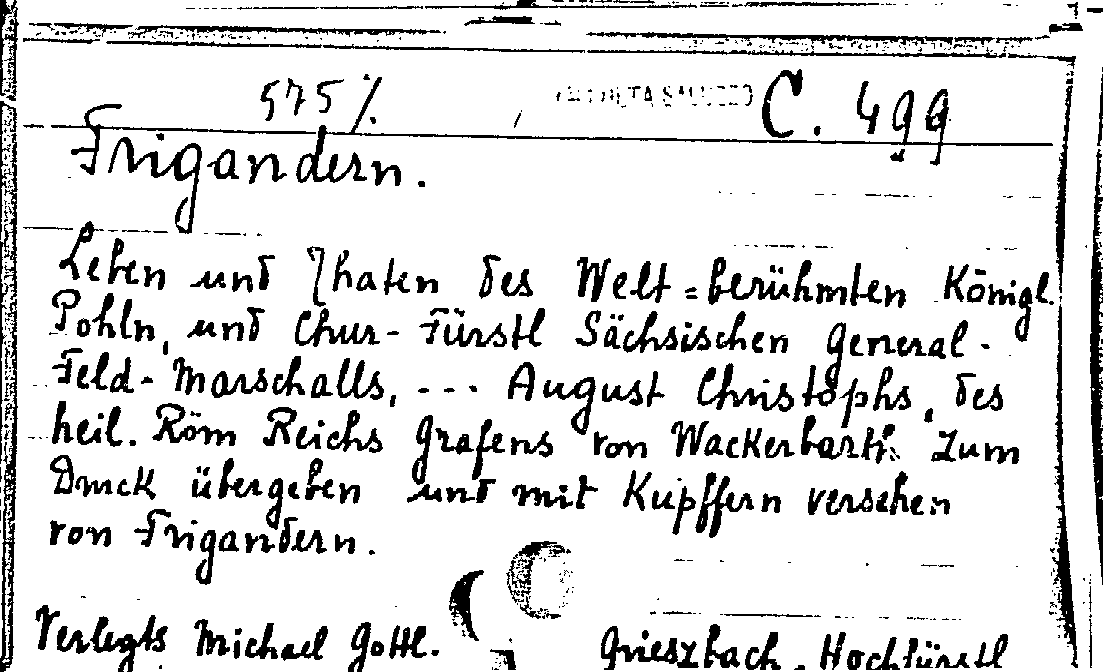 575% C. 499
Frigandern.
Leben und Thaten des Welt=berühmten Königl.
Pohln, und Chur-Fürstl Sächsischen General-
Feld-Marschalls, --- August Christophs, des
heil. Röm Reichs Grafens von Wackerbarth. Zum
Druck übergeben und mit Kupffern versehen
von Frigandern.
Verlegts Michael Gottl. Grieszbach, Hochfürstl